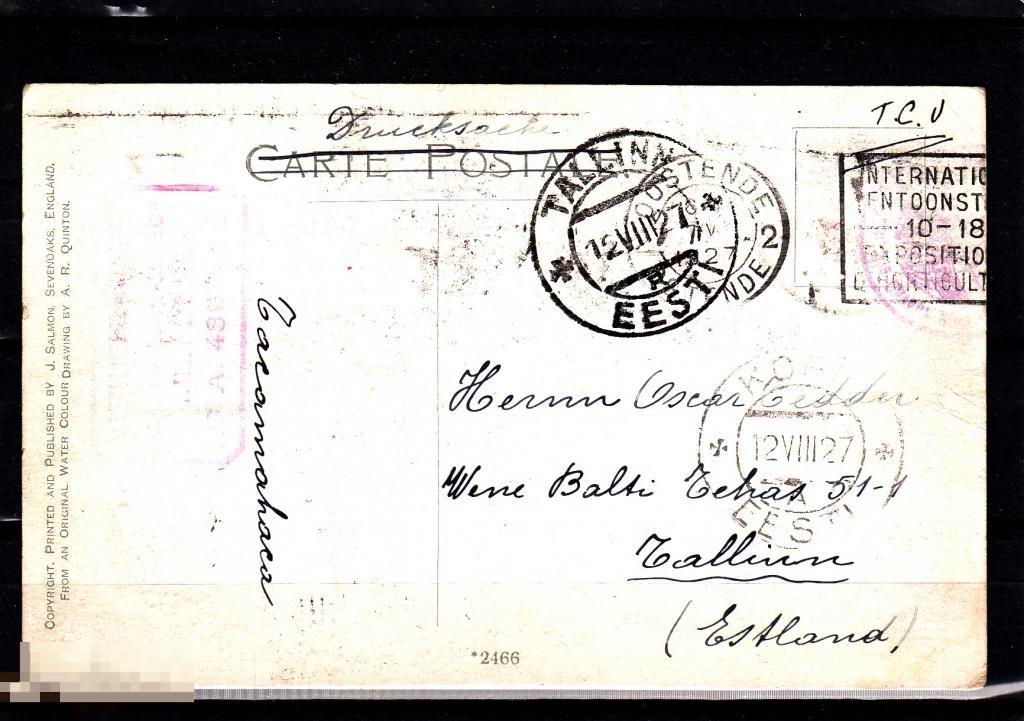 T.C.V
Drucksache
CARTE POSTALE
TALLINN
12 VIII 27
EESTI
OOSTENDE
2
INTERNATIO
TENTOONST
10-18
EXPOSITIO
D'HORTICULT
COPYRIGHT. PRINTED AND PUBLISHED BY J. SALMON, SEVENOAKS, ENGLAND.
FROM AN ORIGINAL WATER COLOUR DRAWING BY A. R. QUINTON.
A. 439
Tacamahaca
Herrn Oscar
12 VIII 27
A
EESTI
Wene Balti Tehas 51-1
Tallinn
(Estland)
*2466